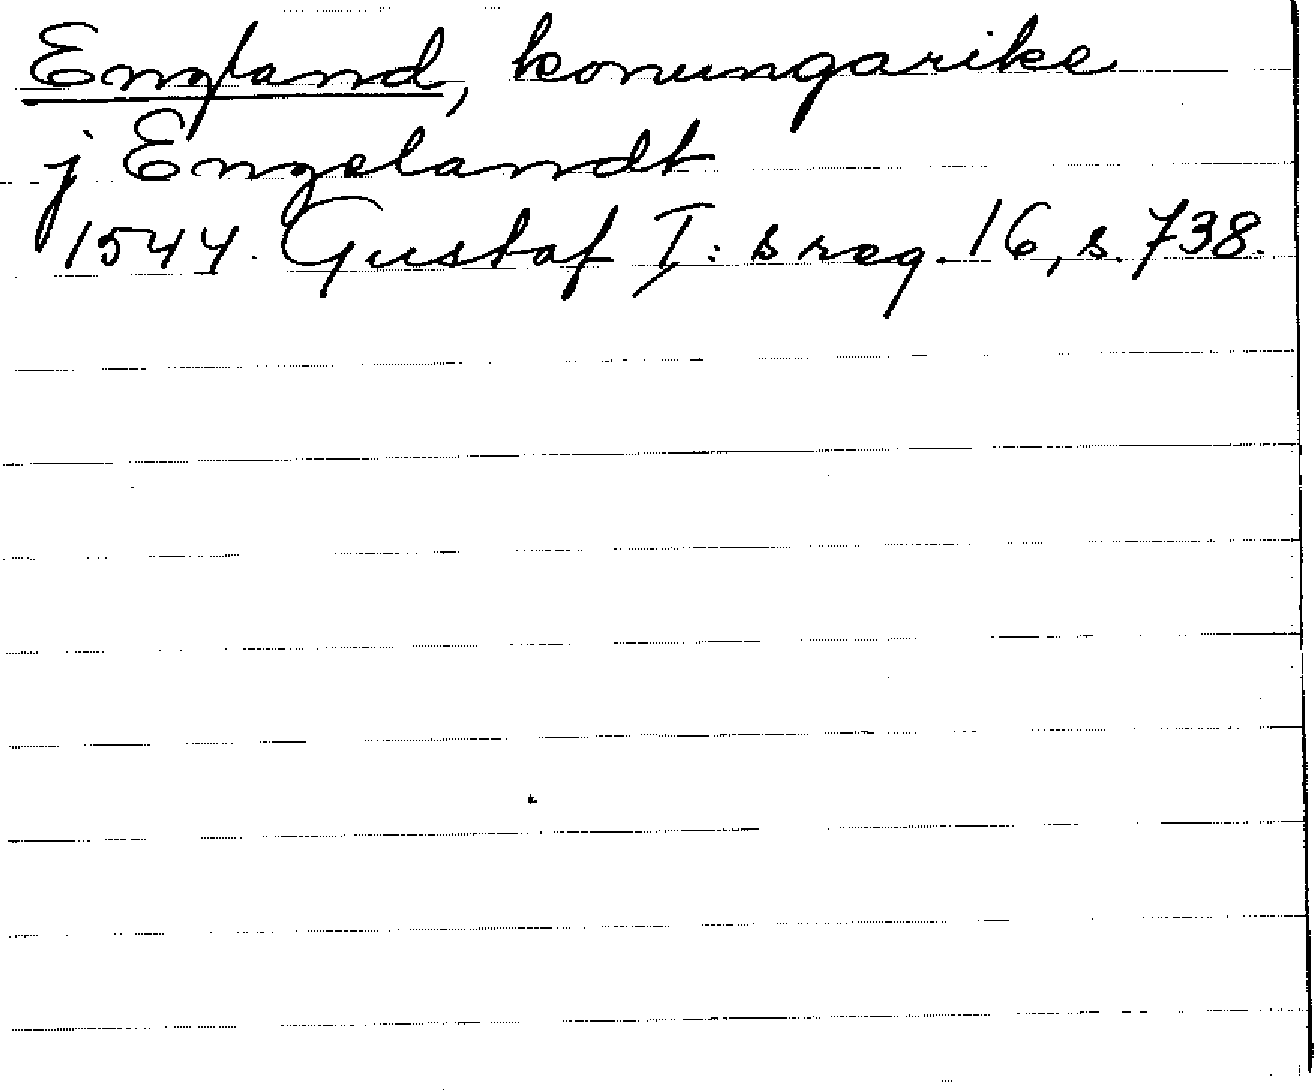 England, konungarike
j Engelandt
1544. Gustaf I: s reg. 16, s. 738.